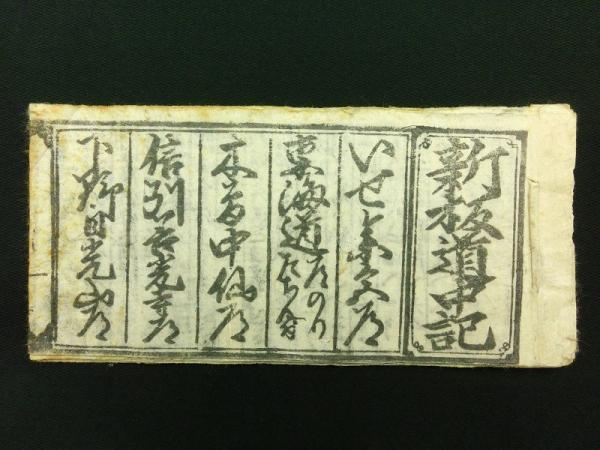 新板道中記
いせ参宮道
東海道
木曽中仙道
信州善光寺道
下野日光山道